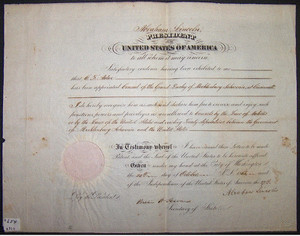 Abraham Lincoln,
PRESIDENT
UNITED STATES OF AMERICA
to all whom it may concern
Satisfactory evidence having been exhibited to me
that
have been appointed Consul of the Grand Duchy of Mecklenburg Schwerin, at
I do hereby recognize him as such and declare him free to exercise and enjoy such
functions, powers and privileges as are allowed to Consuls by the Law of Nations
or by the Laws of the United States and existing Treaty Stipulations between the Government
of Mecklenburg Schwerin and the United States.
In Testimony whereof I have caused these Letters to be made
Patent and the Seal of the United States to be hereunto affixed
Given under my hand at the City of Washington
the day of October A.D.
of the Independence of the United States of America the
Abraham Lincoln
By the President
Secretary of State